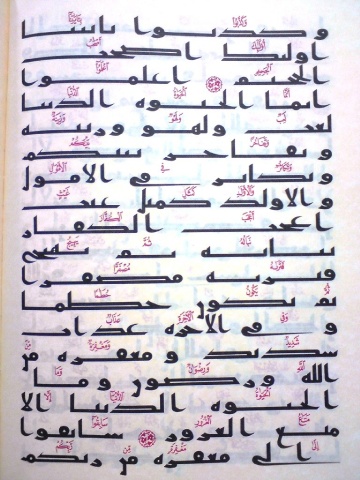 وكذبوا بايتنا
اوليك اصحب
الجحيم اعلموا
انما الحيوه الدنيا
لعب ولهو وزينه
وتفاخر بينكم
وتكاثر في الامول
والاولد كمثل غيث
اعجب الكفار
نباته ثم يهيج
فتريه مصفرا
ثم يكون حطما
وفي الاخره عذاب
شديد ومغفره من
الله ورضون وما
الحيوه الدنيا الا
متع الغرور سابقوا
الى مغفره من ربكم